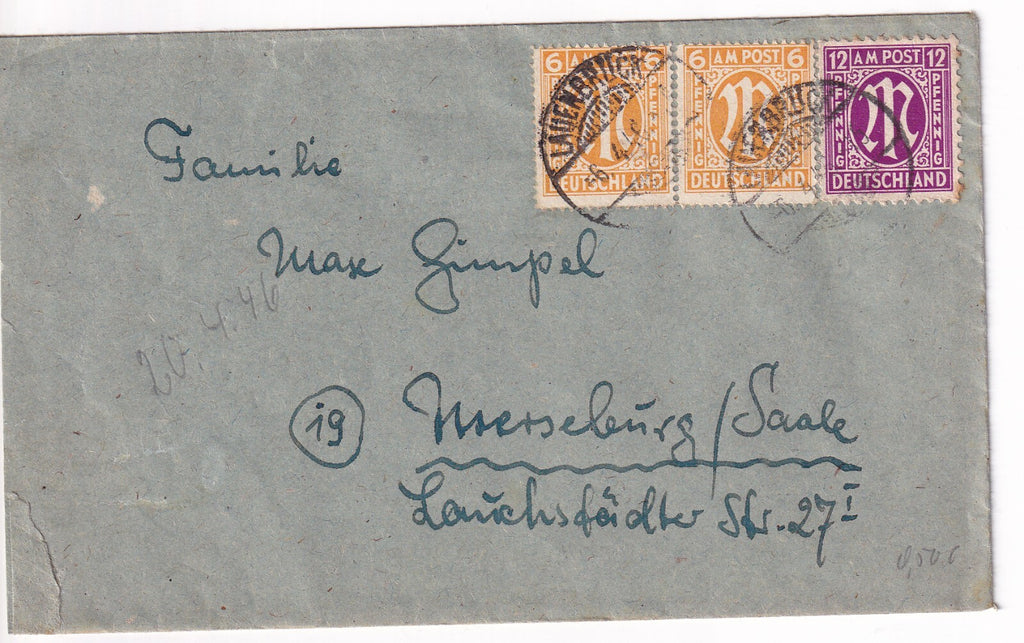 6 AM POST 6
PFENNIG
DEUTSCHLAND
6 AM POST 6
PFENNIG
DEUTSCHLAND
12 AM POST 12
PFENNIG PFENNIG
DEUTSCHLAND
LAUENBRÜCK
Familie
Max Gimpel
20.4.46
19 Merseburg/Saale
Lauchstädter Str. 27 I
0,50